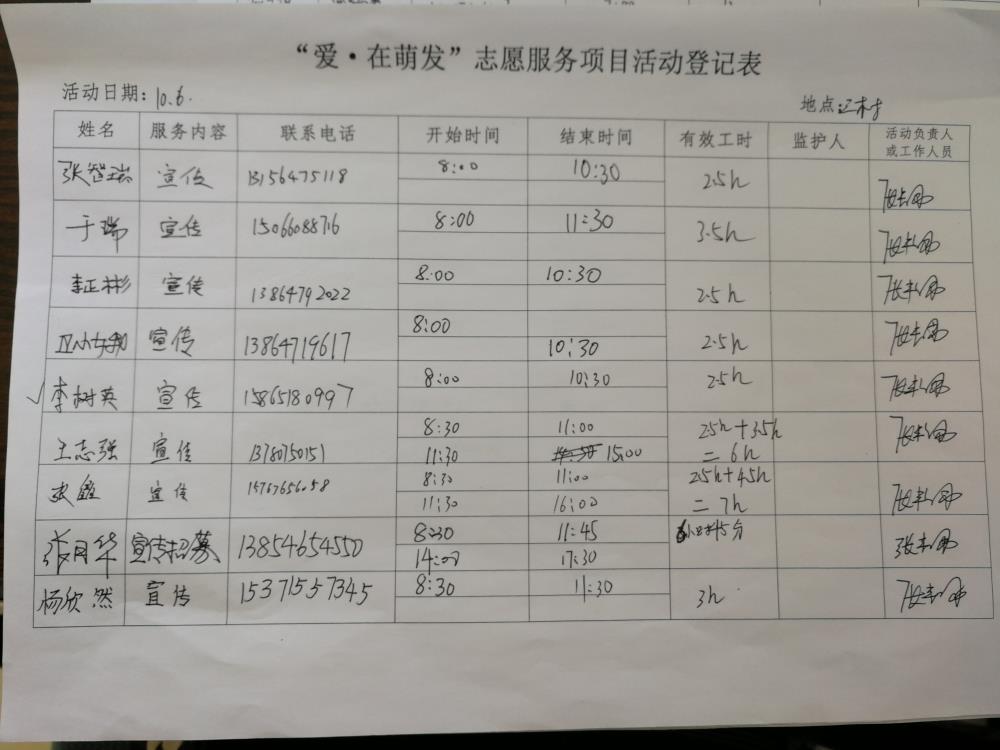 “爱·在萌发”志愿服务项目活动登记表
活动日期：10.6.
地点：
姓名 服务内容 联系电话 开始时间 结束时间 有效工时 监护人 活动负责人或工作人员
张智瑞 宣传 13156475118 8:00 10:30 2.5h
于瑞 宣传 15066088716 8:00 11:30 3.5h
李正彬 宣传 13864792022 8:00 10:30 2.5h
宣传 13864719617 8:00 10:30 2.5h
√李树英 宣传 15865180997 8:00 10:30 2.5h
王志强 宣传 13780750151 8:30 11:00 2.5h+3.5h
11:30 15:00 =6h
宣传 15767656058 8:30 11:00 2.5h+4.5h
11:30 16:00 =7h
张月华 宣传招募 13854654550 8:30 11:45 6小时45分
14:00 17:30
杨欣然 宣传 15371557345 8:30 11:30 3h